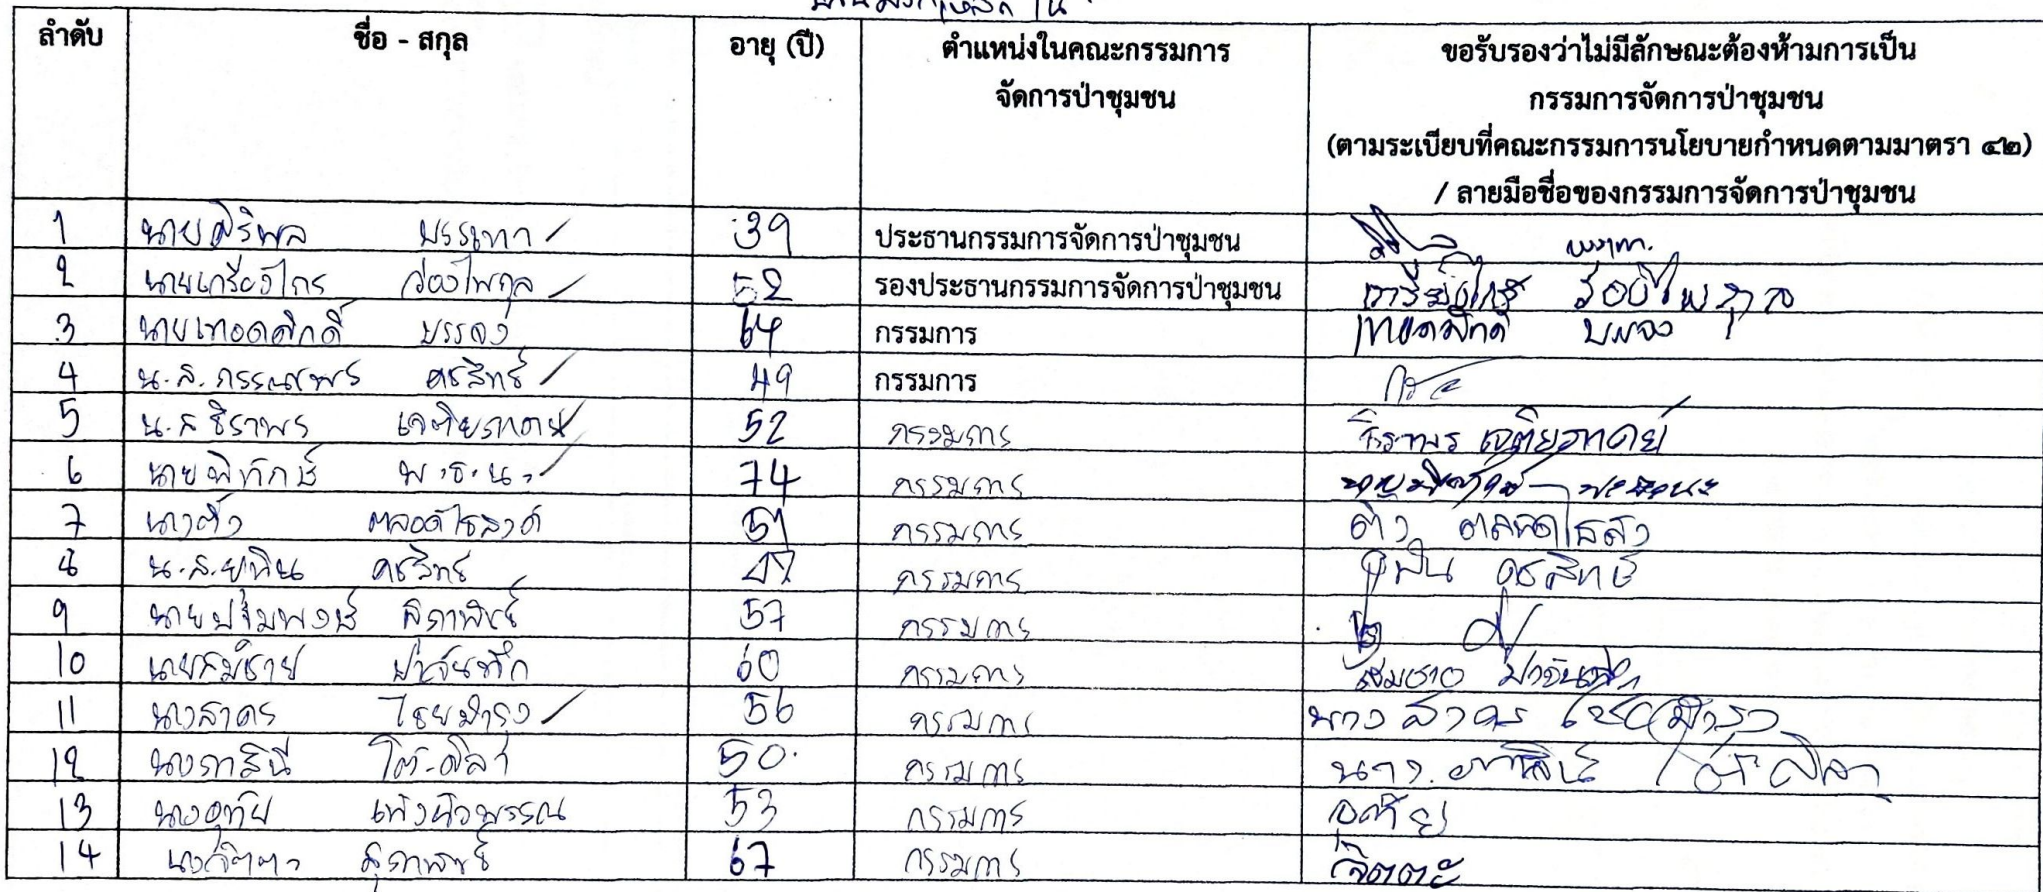 ลำดับ ชื่อ - สกุล อายุ (ปี) ตำแหน่งในคณะกรรมการ ขอรับรองว่าไม่มีลักษณะต้องห้ามการเป็น
จัดการป่าชุมชน กรรมการจัดการป่าชุมชน
(ตามระเบียบที่คณะกรรมการนโยบายกำหนดตามมาตรา ๔๒)
/ ลายมือชื่อของกรรมการจัดการป่าชุมชน
1 นายศิริพล บรรเทา 39 ประธานกรรมการจัดการป่าชุมชน
2 นายเกรียงไกร ว่องไพกุล 52 รองประธานกรรมการจัดการป่าชุมชน เกรียงไกร ว่องไพกุล
3 นายเทอดศักดิ์ บรรจง 64 กรรมการ เทอดศักดิ์ บรรจง
4 น.ส. กรรณพร คชสิทธ์ 49 กรรมการ
5 น.ส ธิราพร เจติยภาคย์ 52 กรรมการ ธิราพร เจติยภาคย์
6 นายพิทักษ์ 74 กรรมการ
7 นางติ๋ว ตลอดไธสงค์ 51 กรรมการ ติ๋ว ตลอดไธสง
8 น.ส.ยุพิน คชสิทธ์ 47 กรรมการ ยุพิน คชสิทธ์
9 57 กรรมการ
10 นายสมชาย ปาจันทึก 60 กรรมการ สมชาย ปาจันทึก
11 นางสาคร ไชยบำรุง 56 กรรมการ นาง สาคร ไชยบำรุง
12 นางภาสินี โต๊ะสีลา 50 กรรมการ
13 นางอุทัย 53 กรรมการ อุทัย
14 นางจิตตะ สุภาพันธ์ 67 กรรมการ จิตตะ